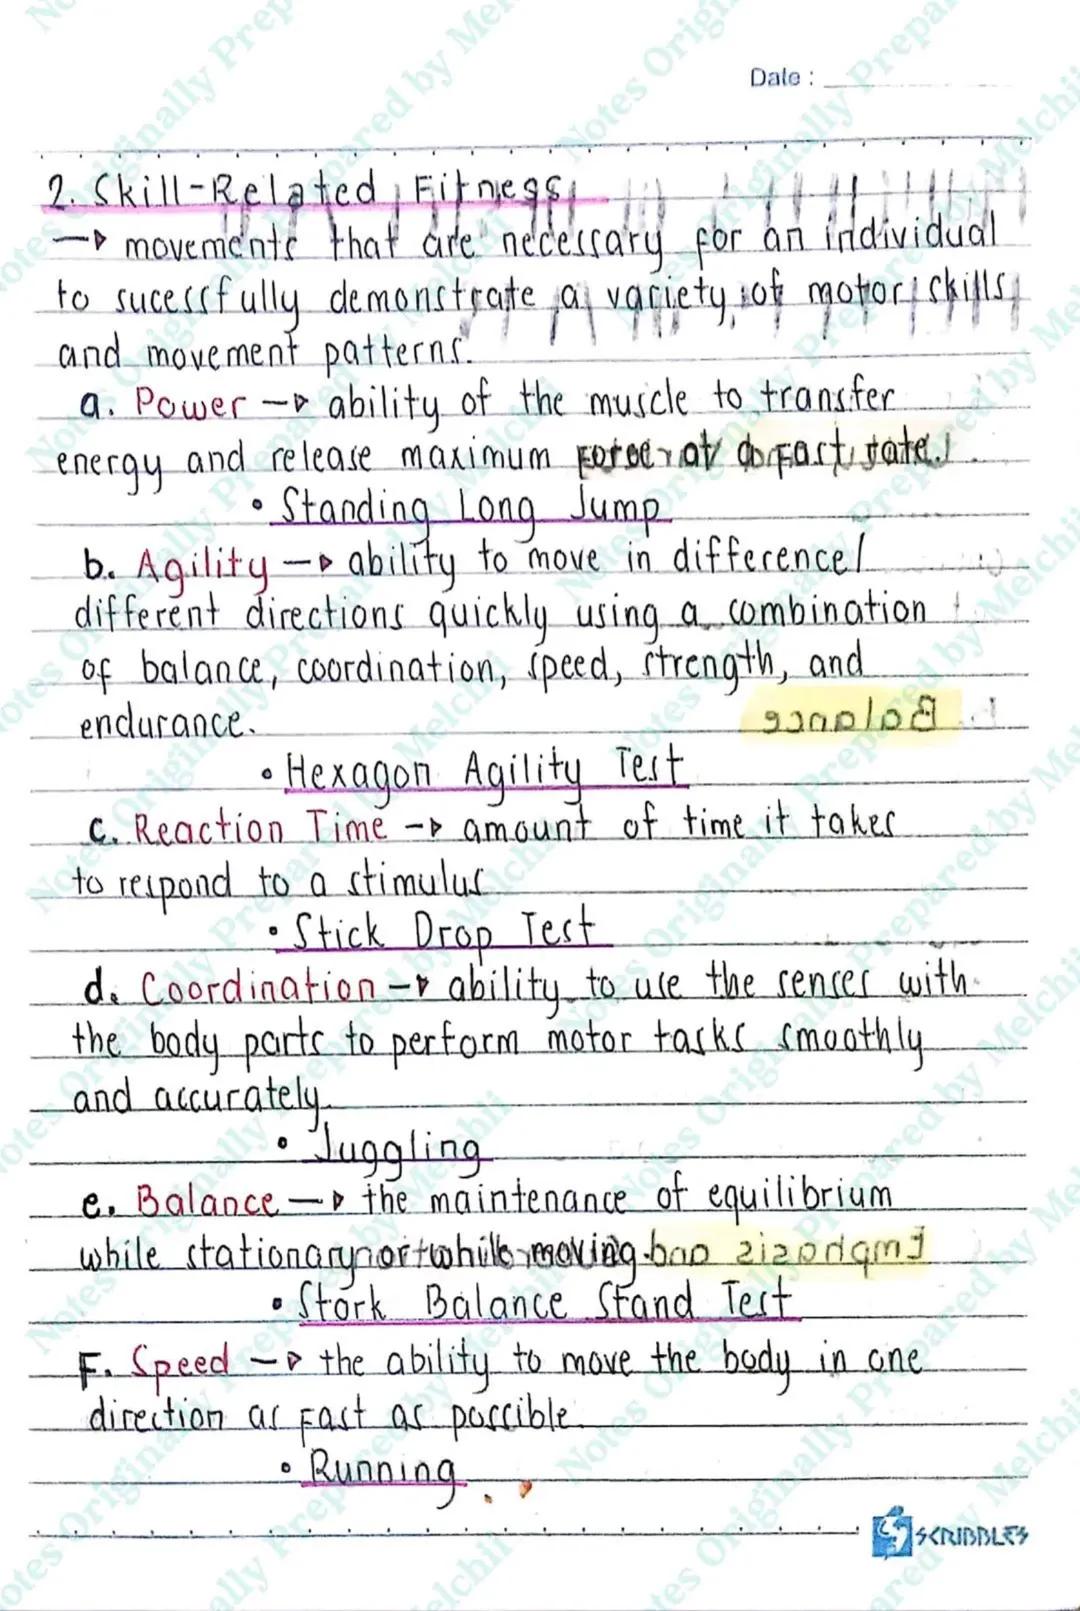 Date :
2. Skill-Related Fitness
→ movements that are necessary for an individual
to sucessfully demonstrate a variety of motor skills
and movement patterns.
a. Power → ability of the muscle to transfer
energy and release maximum force at a fast rate.
• Standing Long Jump
b. Agility → ability to move in difference/
different directions quickly using a combination
of balance, coordination, speed, strength, and
endurance.
b. Balance
• Hexagon Agility Test
c. Reaction Time → amount of time it takes
to respond to a stimulus
• Stick Drop Test
d. Coordination → ability to use the senses with
the body parts to perform motor tasks smoothly
and accurately.
• Juggling
e. Balance → the maintenance of equilibrium
while stationary or while moving.
Emphasis and
• Stork Balance Stand Test
F. Speed → the ability to move the body in one
direction as fast as possible.
• Running
SCRIBBLES
Notes Originally Prepared by Melchii